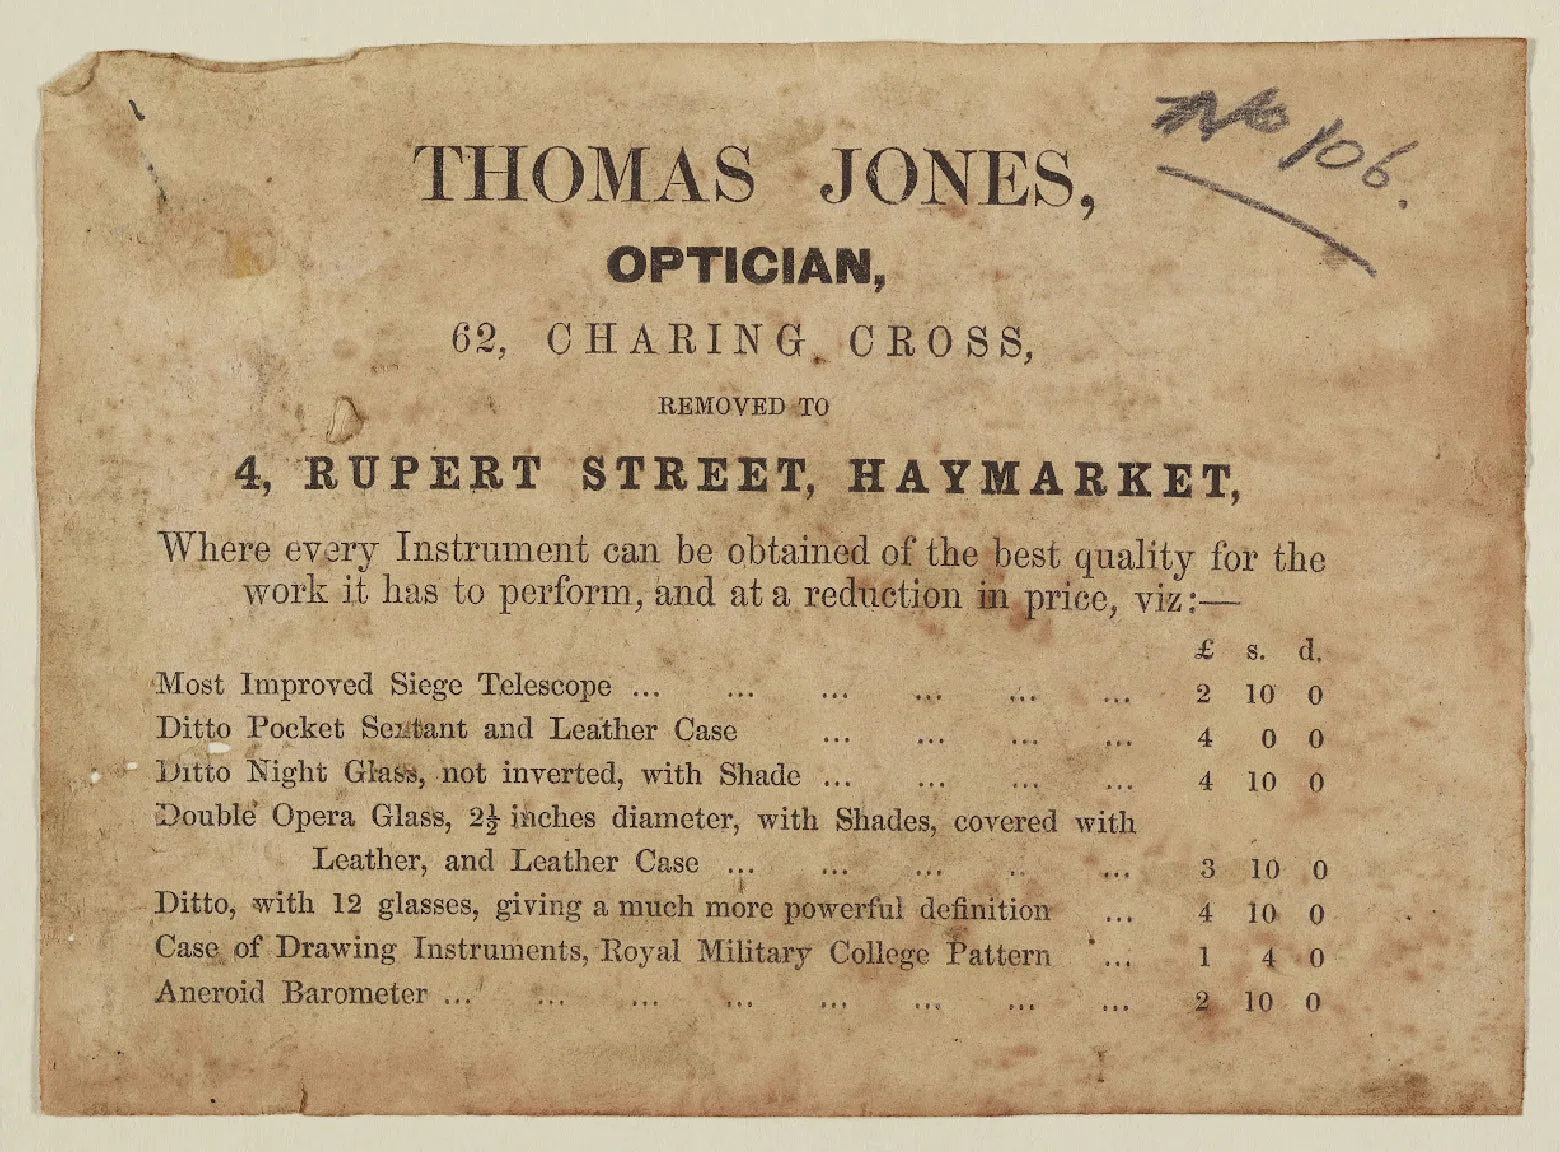 No 106.
THOMAS JONES,
OPTICIAN,
62, CHARING CROSS,
REMOVED TO
4, RUPERT STREET, HAYMARKET,
Where every Instrument can be obtained of the best quality for the
work it has to perform, and at a reduction in price, viz:—
£ s. d.
Most Improved Siege Telescope ... ... ... ... ... ... 2 10 0
Ditto Pocket Sextant and Leather Case ... ... ... ... 4 0 0
Ditto Night Glass, not inverted, with Shade ... ... ... ... 4 10 0
Double Opera Glass, 2½ inches diameter, with Shades, covered with
Leather, and Leather Case ... ... ... ... ... 3 10 0
Ditto, with 12 glasses, giving a much more powerful definition ... 4 10 0
Case of Drawing Instruments, Royal Military College Pattern ... 1 4 0
Aneroid Barometer ... ... ... ... ... ... ... ... 2 10 0